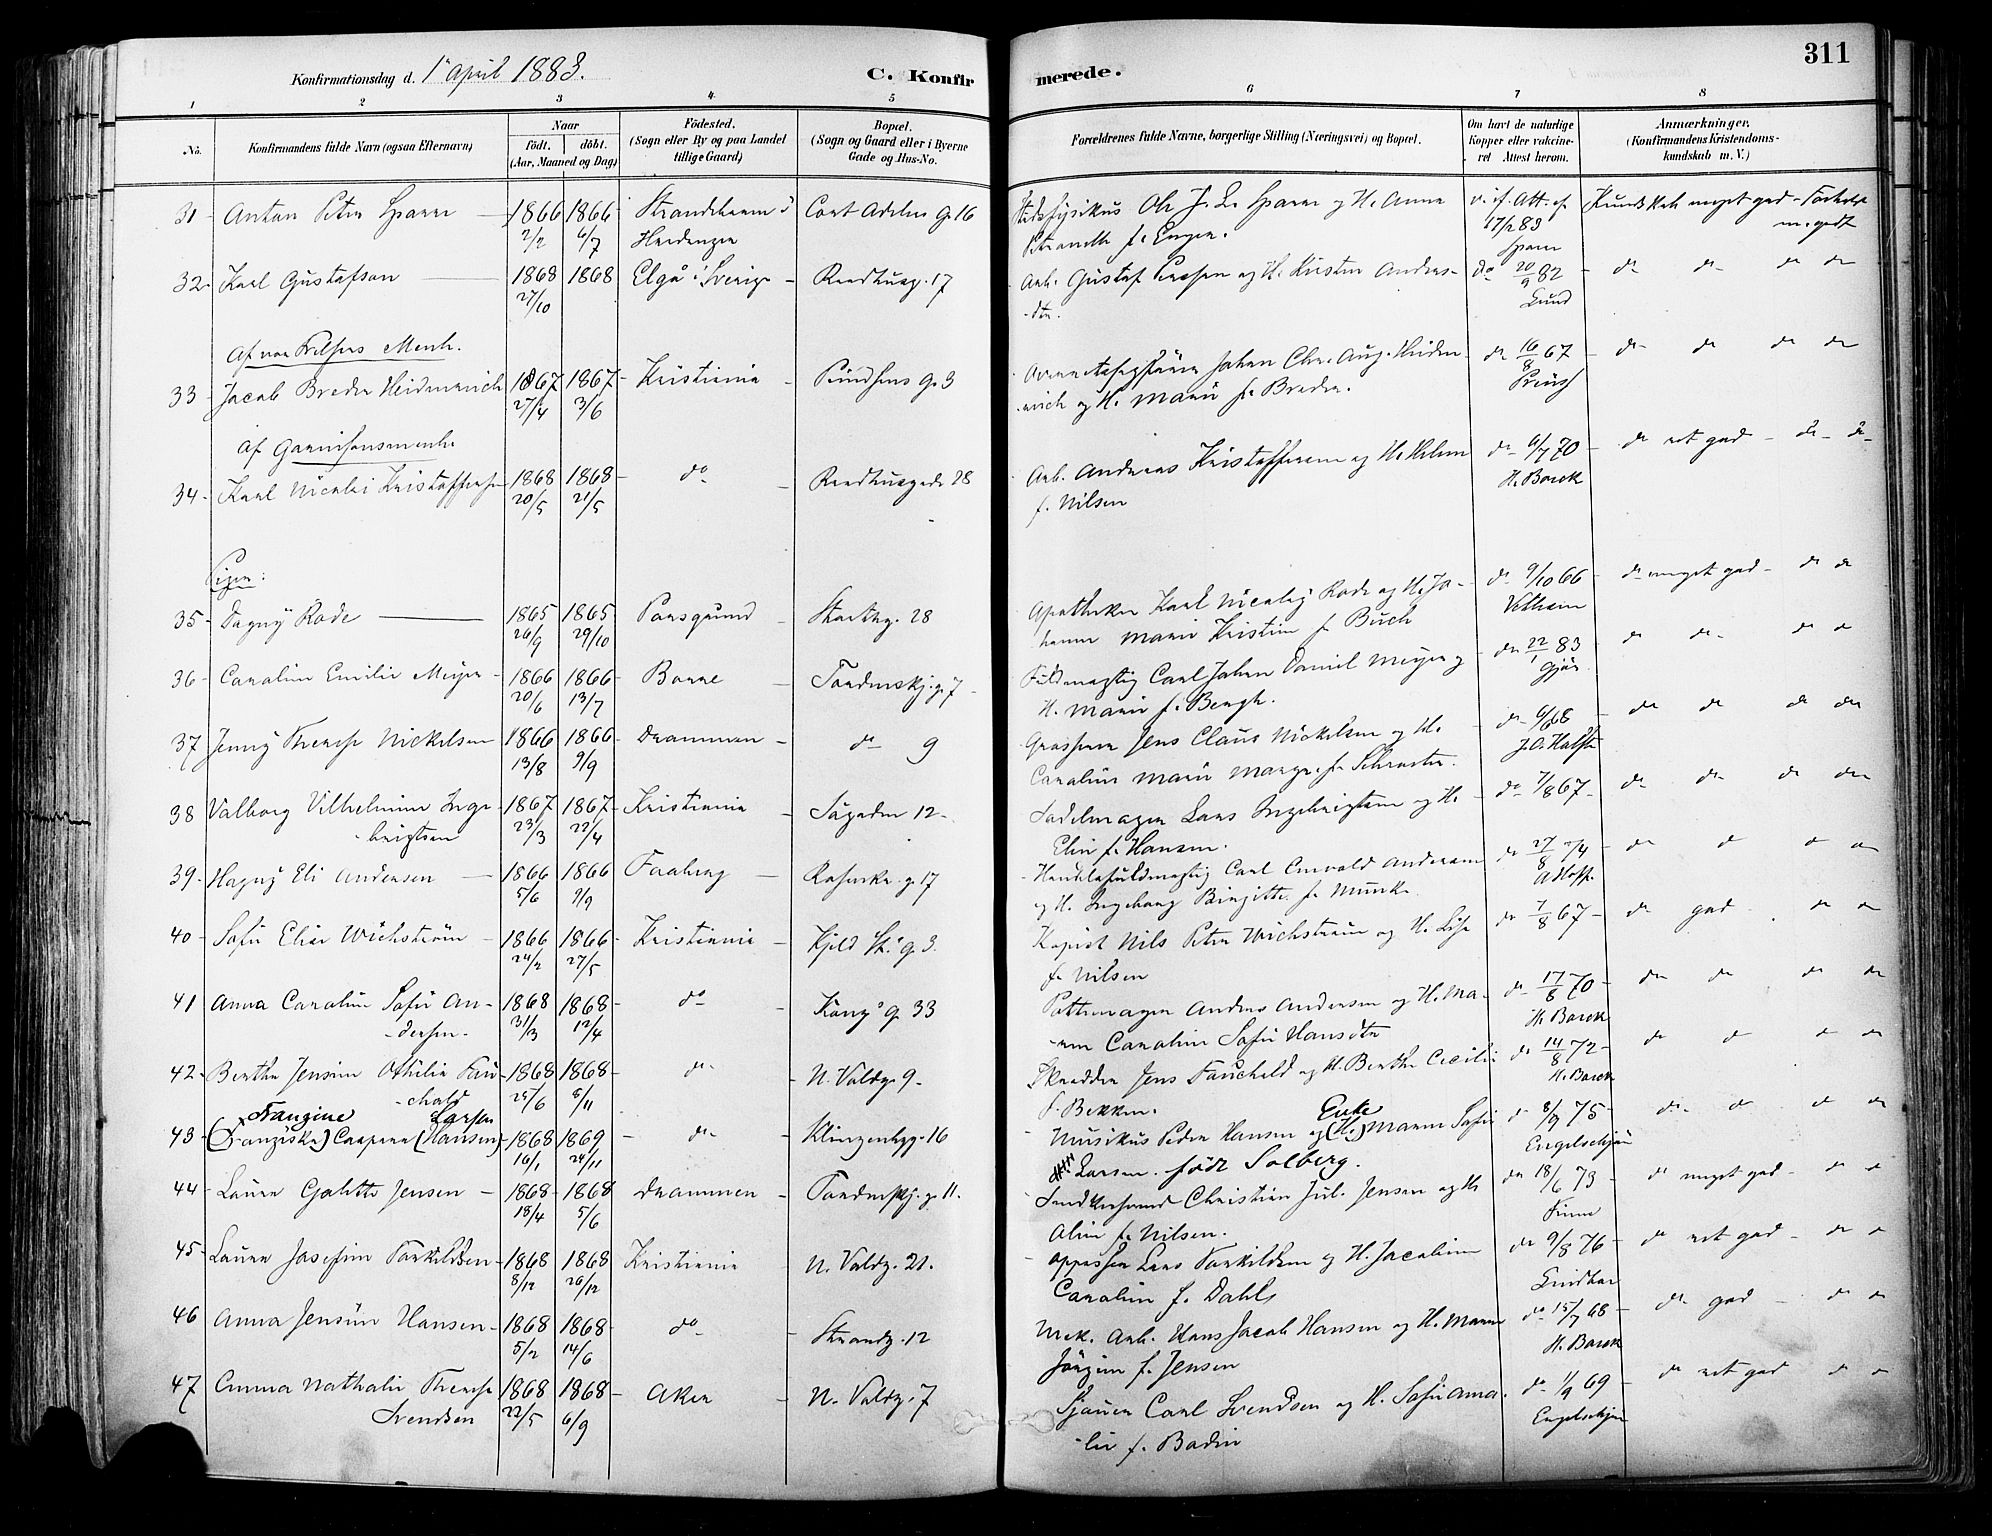 311
Konfirmationsdag d. 1 April 1883. C. Konfirmerede.
1 2 3 4 5 6 7 8
No. Konfirmandens fulde Navn (ogsaa Efternavn) Naar födt. döbt. (Aar, Maaned og Dag) Födested. (Sogn eller By og paa Landet tillige Gaard) Bopæl. (Sogn og Gaard eller i Byerne Gade og Hus-No. Forældrenes fulde Navne, borgerlige Stilling (Næringsvei) og Bopæl. Om havt de naturlige Kopper eller vaccineret Attest herom. Anmærkninger. (Konfirmandens Kristendomskundskab m. V.)
31 Anton Petter 1866 1866 Cort Adelers g. 16 og H. Anna v. if. Att. af Kundskab meget god
2/2 6/7 f. Engen. 17/2 83 m. godt
32 Karl Gustafson 1868 1868 Elgå i Sverige Raadhusg. 17 Arb. Gustaf og H. do 20/9 82 do do do do
27/10 Lund
33 Jacob Breder Heidenreich 1867 1867 Kristiania g. 3 Johan Chr. Aug. Heiden- do 16/8 67 do do do do
27/4 3/6 reich og H. Marie f. Breder.
Af Garnisonsmenh.
34 Karl Nicolai Kristoffersen 1868 1868 do Raadhusgade 28 Arb. Andreas Kristoffersen og H. Helene do 6/7 70 do ret god do do
20/5 21/5 f. Nilsen H. Borck
Piger:
35 Dagny Rode 1865 1865 Porsgrund 28 Apotheker Karl Nicolaj Rode og H. Jo- do 9/10 66 do meget god do do
26/9 29/10 hanne Marie Kristine f. Buch
36 Caroline Emilie Meyer 1866 1866 7 Fuldmægtig Carl Johan Daniel Meyer og do 22/1 83 do do do do
20/6 13/7 H. Marie f. Bergh.
37 Jenny Therese Nickelsen 1866 1866 Drammen do 9 Grosserer Jens Claus Nickelsen og H. do 6/6 68 do do do do
13/8 9/9 Caroline Marie
38 Valborg Vilhelmine Inge- 1867 1867 Kristiania Søgaden 12 Sadelmager Lars Ingebrigtsen og H. do 7/8 67 do do do do
brigtsen 23/3 22/4 Elin f. Hansen.
39 Hagny Eli Andersen 1866 1866 Faaberg g. 17 Handelsfuldmægtig Carl Andersen do 27/8 74 do do do do
5/6 9/9 og H. Ingeborg Birgitte f. Munck
40 Sofie Elise Wichstrøm 1866 1866 Kristiania Kjeld St. g. 3. Kopist Nils Peter Wichstrøm og H. Lise do 7/8 67 do god do do
24/2 27/5 f. Nilsen
41 Anna Caroline Sofie An- 1868 1868 do Kong. g. 33 Pottemager Anders Andersen og H. Ma- do 17/8 70 do do do do
dersen 31/3 12/4 Caroline Sofie H. Borck
42 Berthe Jensine Othilie Fau- 1868 1868 do N. Voldg. 9 Skrædder Jens Fauchald og H. Berthe Cecilie do 14/8 72 do do do do
chald 25/6 8/11 f. Bekken. H. Borck
Frangine Larsen Enke
43 (Franziska) Caspara (Hansen) 1868 1869 do Klingenbgg. 16 Musikus Peder Hansen og (H.) Maren Sofie do 8/9 75 do do do do
16/1 24/11 Larsen. född Solberg. Engelschjøn
44 Laura Galette Jensen 1868 1868 Drammen g. 11. Christian Jul. Jensen og H. do 18/6 73 do meget god do do
18/4 5/6 f. Nilsen.
45 Laura Josefine Torkildsen 1868 1868 Kristiania N. Voldg. 21. Lars Torkildsen og H. Jacobine do 9/8 76 do ret god do do
8/12 26/12 Caroline f. Dahl
46 Anna Jensine Hansen 1868 1868 do Strandg. 12 Mek. Arb. Hans Jacob Hansen og H. Maren do 15/7 68 do god do do
5/2 14/6 f. Jensen H. Borck
47 Emma Nathalie Therese 1868 1868 Aker N. Voldg. 7 Sjauer Carl Svendsen og H. Sofie Ama- do 1/9 69 do ret god do do
Svendsen 22/5 6/9 lie f. Bodin Engelschjøn